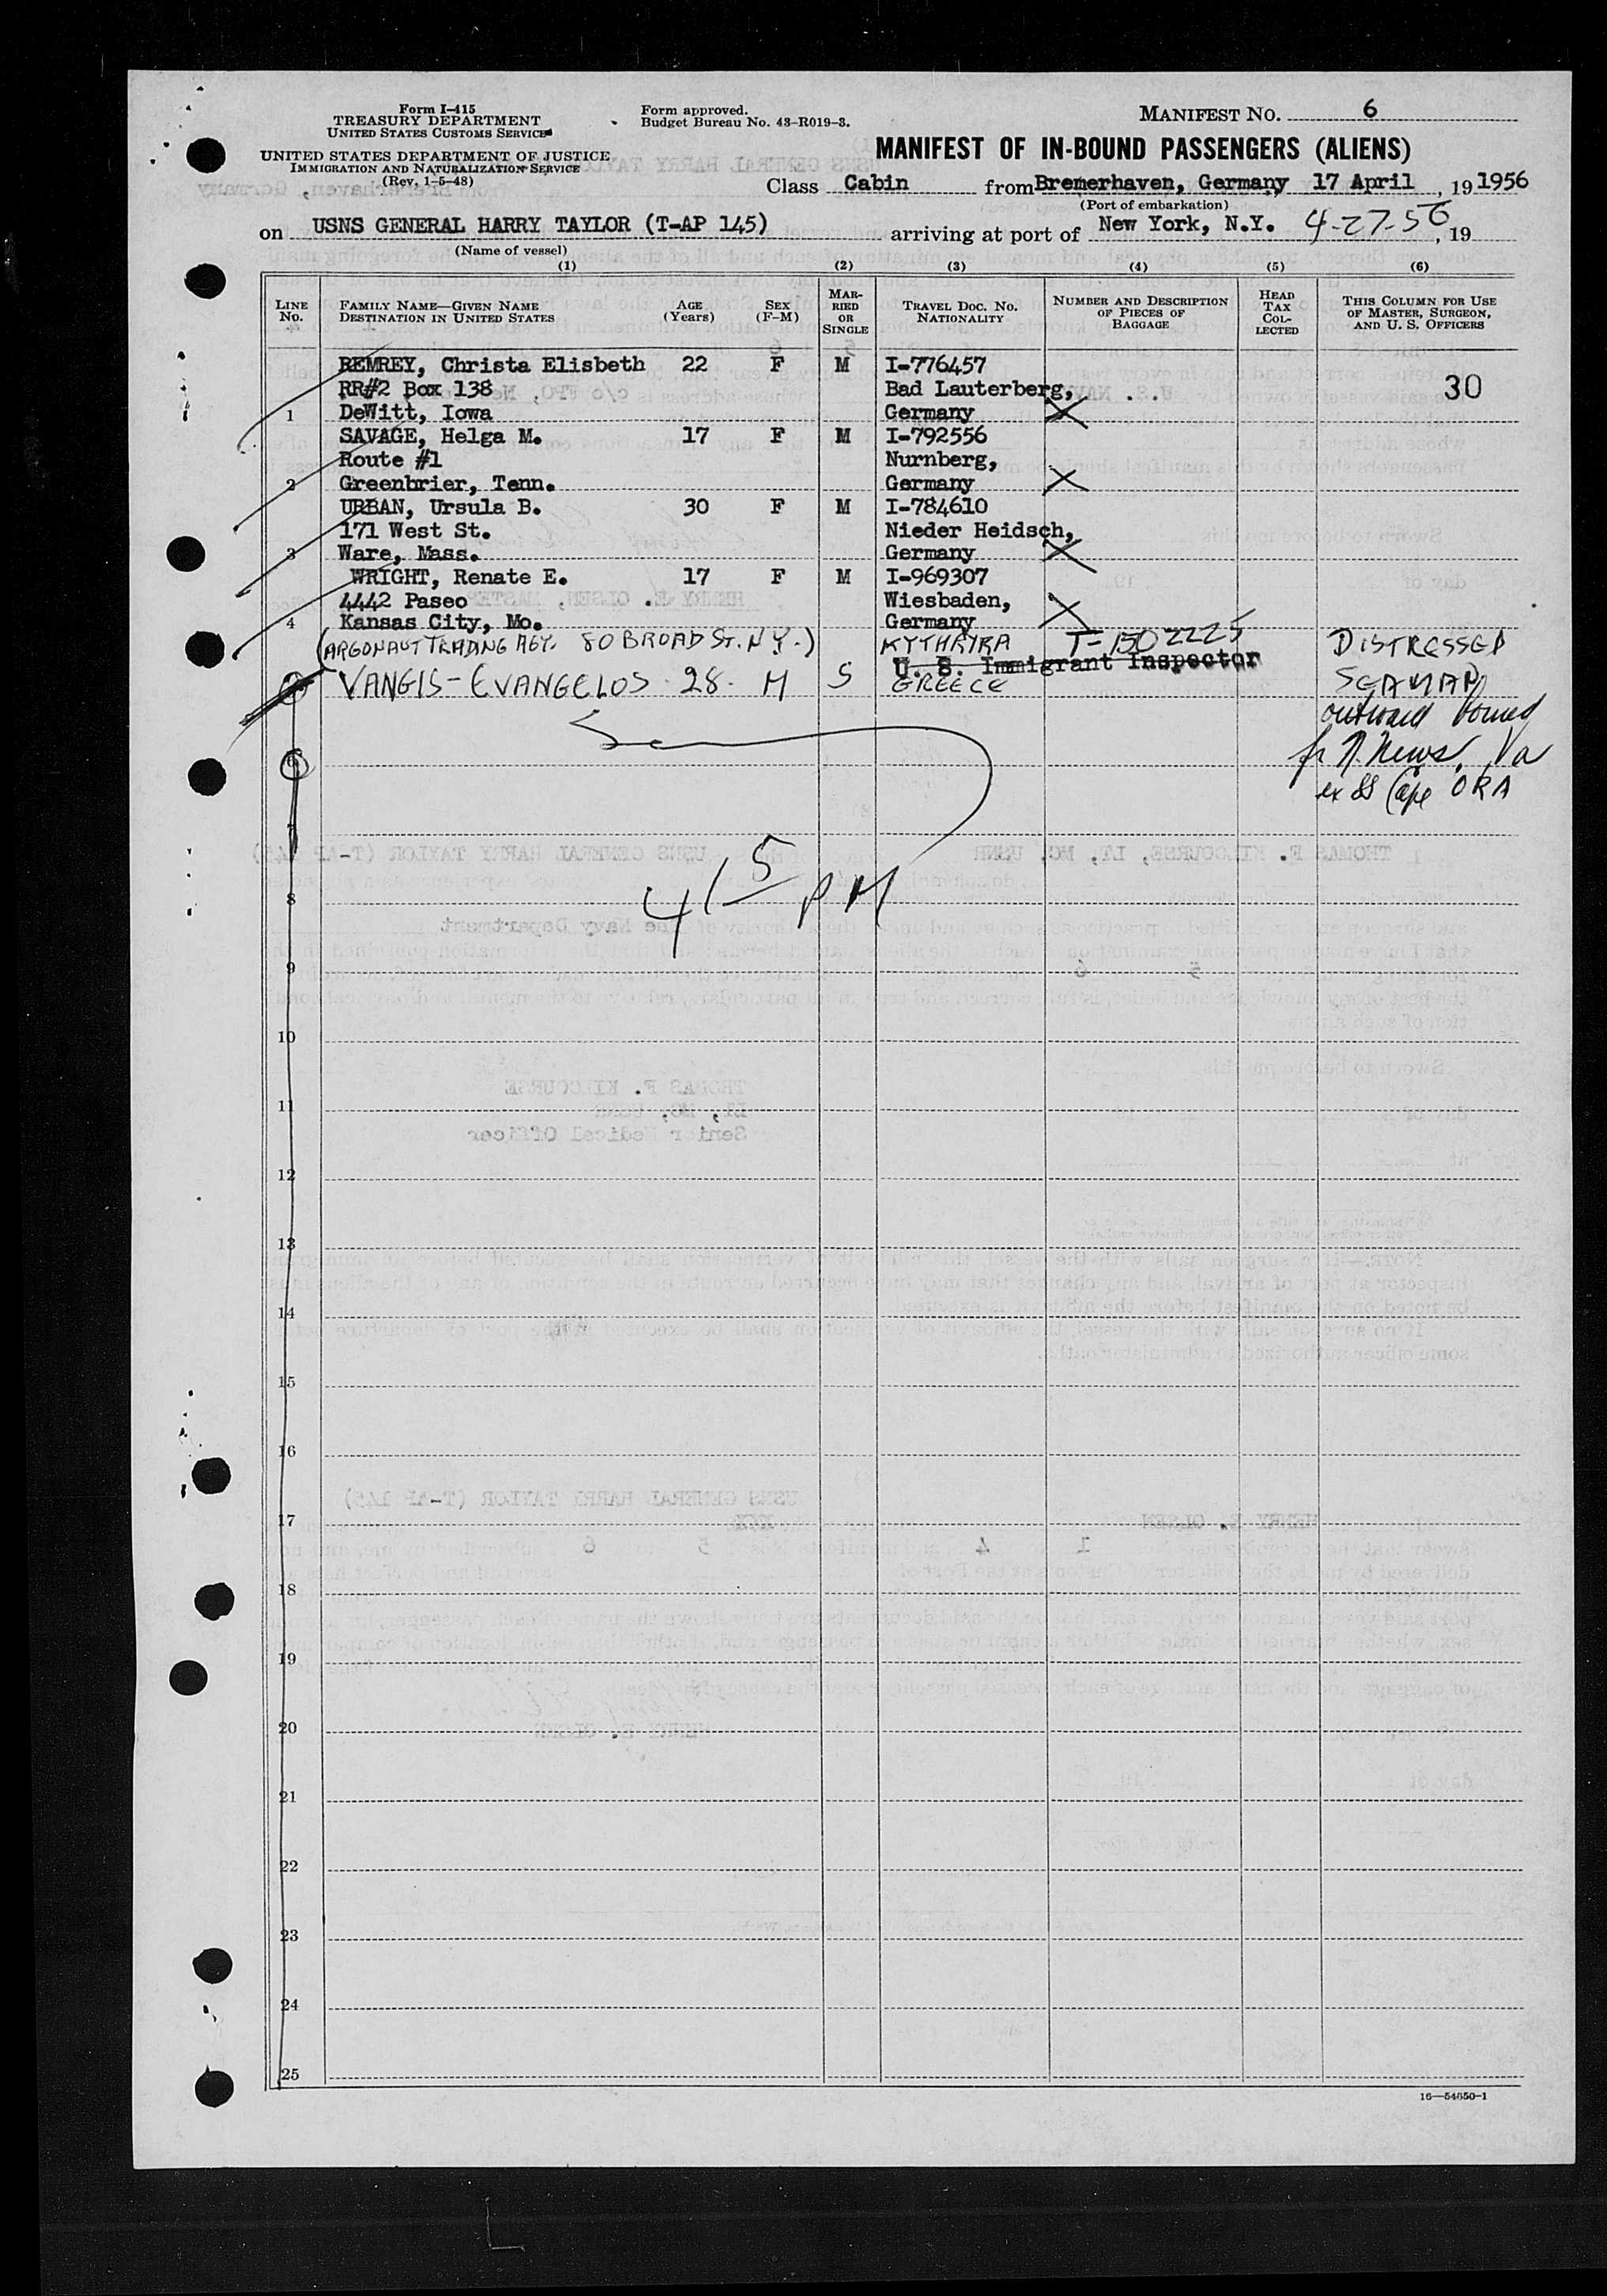 Form I-415
TREASURY DEPARTMENT
UNITED STATES CUSTOMS SERVICE
UNITED STATES DEPARTMENT OF JUSTICE
IMMIGRATION AND NATURALIZATION SERVICE
(Rev. 1-5-48)
Form approved.
Budget Bureau No. 43-R019-3.
MANIFEST NO. 6
MANIFEST OF IN-BOUND PASSENGERS (ALIENS)
Class Cabin from Bremerhaven, Germany 17 April, 19 1956
(Port of embarkation)
on USNS GENERAL HARRY TAYLOR (T-AP 145) arriving at port of New York, N.Y. 4-27-56, 19
(Name of vessel)
(1) (2) (3) (4) (5) (6)
LINE No. FAMILY NAME—GIVEN NAME DESTINATION IN UNITED STATES AGE (Years) SEX (F-M) MARRIED OR SINGLE TRAVEL DOC. NO. NATIONALITY NUMBER AND DESCRIPTION OF PIECES OF BAGGAGE HEAD TAX COLLECTED THIS COLUMN FOR USE OF MASTER, SURGEON, AND U. S. OFFICERS
REMREY, Christa Elisbeth 22 F M I-776457
RR#2 Box 138 Bad Lauterberg, 30
1 DeWitt, Iowa Germany X
SAVAGE, Helga M. 17 F M I-792556
Route #1 Nurnberg,
2 Greenbrier, Tenn. Germany X
URBAN, Ursula B. 30 F M I-784610
171 West St. Nieder Heidsch,
3 Ware, Mass. Germany X
WRIGHT, Renate E. 17 F M I-969307
4442 Paseo Wiesbaden,
4 Kansas City, Mo. Germany X
(ARGONAUT TRADING AGY. 80 BROAD ST. N.Y.) KYTHRIRA T-1502225 DISTRESSED
U. S. Immigrant Inspector
VANGIS-EVANGELOS 28 M S GREECE SEAMAN
outward bound
fr N. News, Va
ex SS Cape ORA
6
7
415 PM
8
9
10
11
12
13
14
15
16
17
18
19
20
21
22
23
24
25
16—54650-1